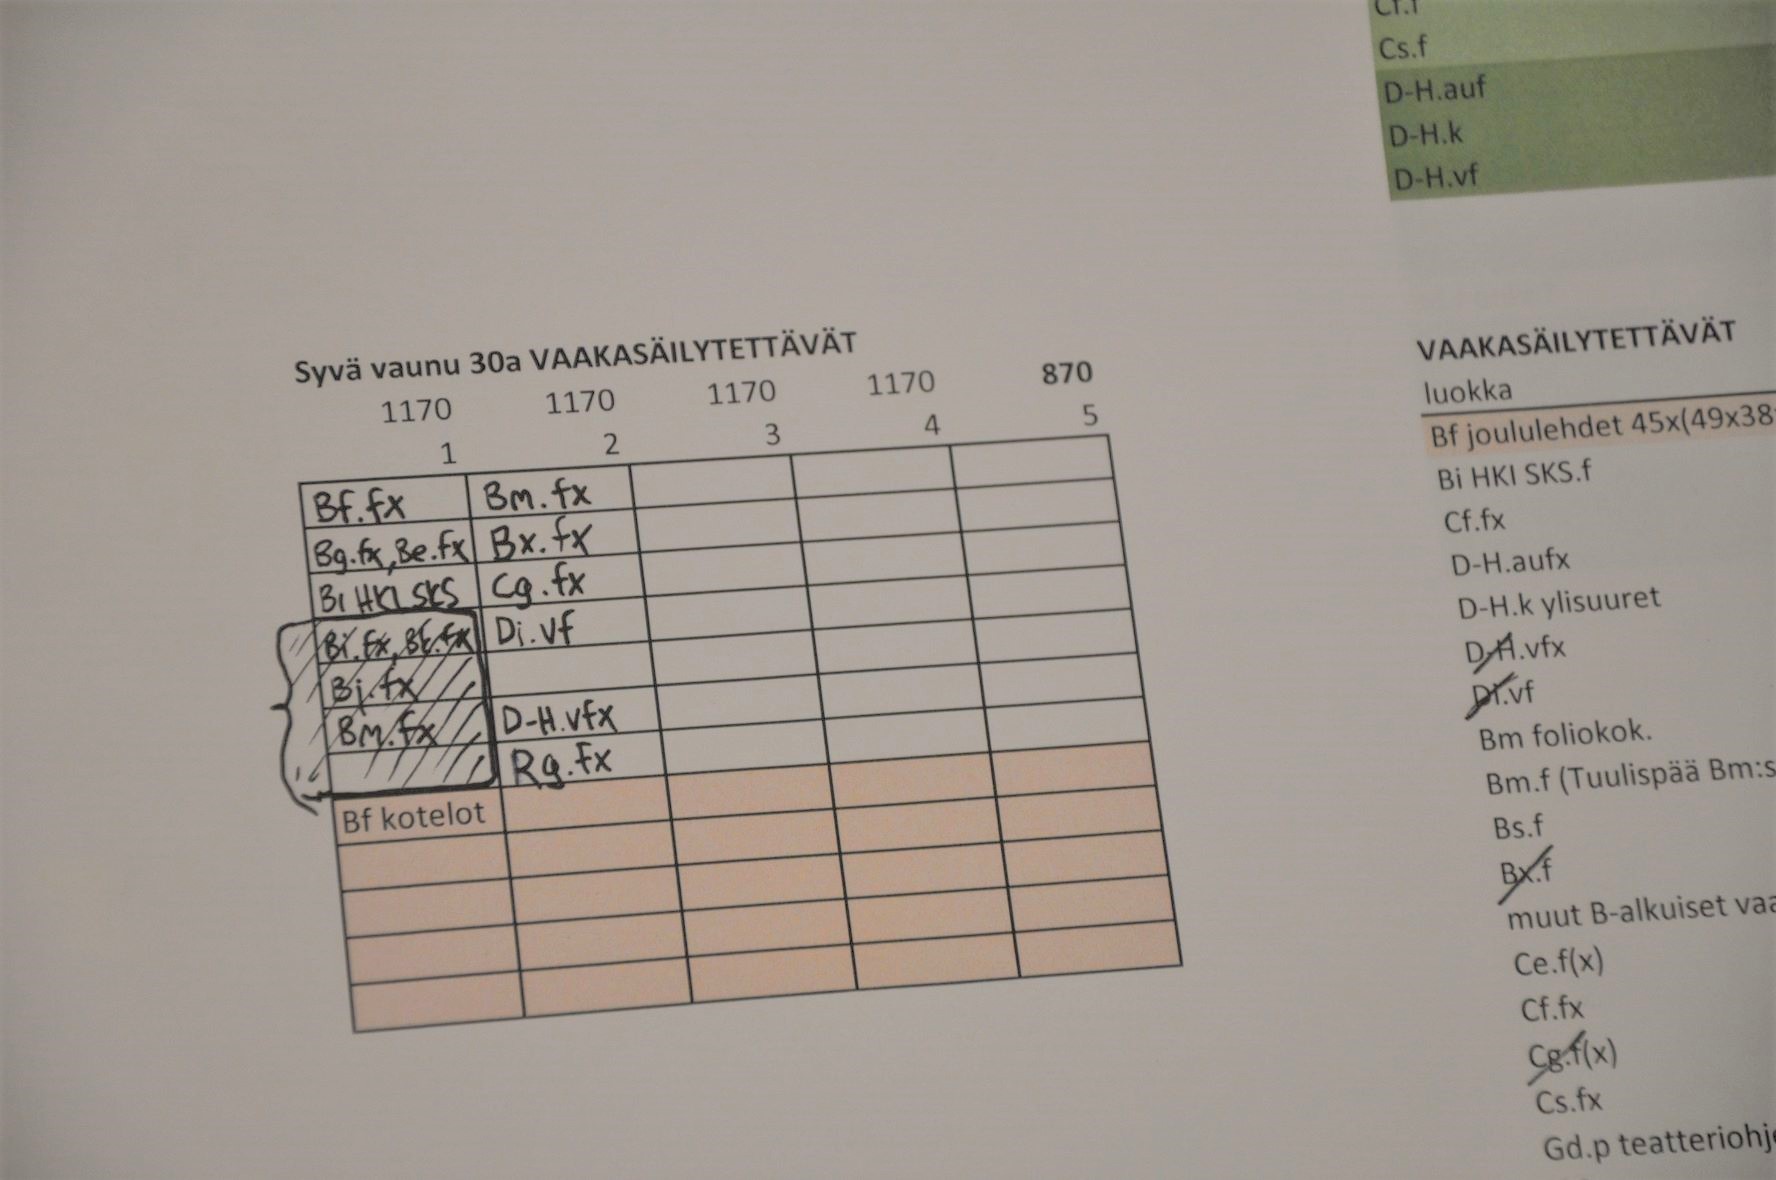 Cs.f
D-H.auf
D-H.k
D-H.vf
Syvä vaunu 30a VAAKASÄILYTETTÄVÄT
1170 1170 1170 1170 870
1 2 3 4 5
Bf.fx Bm.fx
Bg.fx, Be.fx Bx.fx
Bi HKI SKS Cg.fx
Bi.fx, Di.vf
Bj.fx
Bm.fx D-H.vfx
Rg.fx
Bf kotelot
VAAKASÄILYTETTÄVÄT
luokka
Bf joululehdet 45x(49x38
Bi HKI SKS.f
Cf.fx
D-H.aufx
D-H.k ylisuuret
D-H.vfx
Di.vf
Bm foliokok.
Bm.f (Tuulispää Bm:s
Bs.f
Bx.f
muut B-alkuiset vaa
Ce.f(x)
Cf.fx
Cg.f(x)
Cs.fx
Gd.p teatteriohje